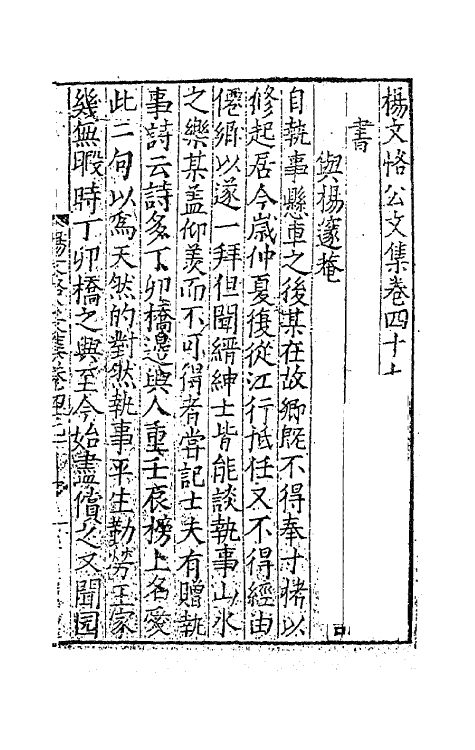 楊文恪公文集卷四十七
書
與楊邃菴
自執事懸車之後某在故鄉既不得奉寸楮以
修起居今嵗仲夏復從江行抵任又不得經由
僊鄉以遂一拜但聞縉紳士皆能談執事山水
之樂某盖仰羡而不可得者嘗記士夫有贈執
事詩云詩多丁卯橋邉興人重壬辰榜上名愛
此二句以爲天然的對然執事平生勤勞王家
幾無暇時丁卯橋之興至今始盡償之又聞园
楊文恪公文集卷四十七